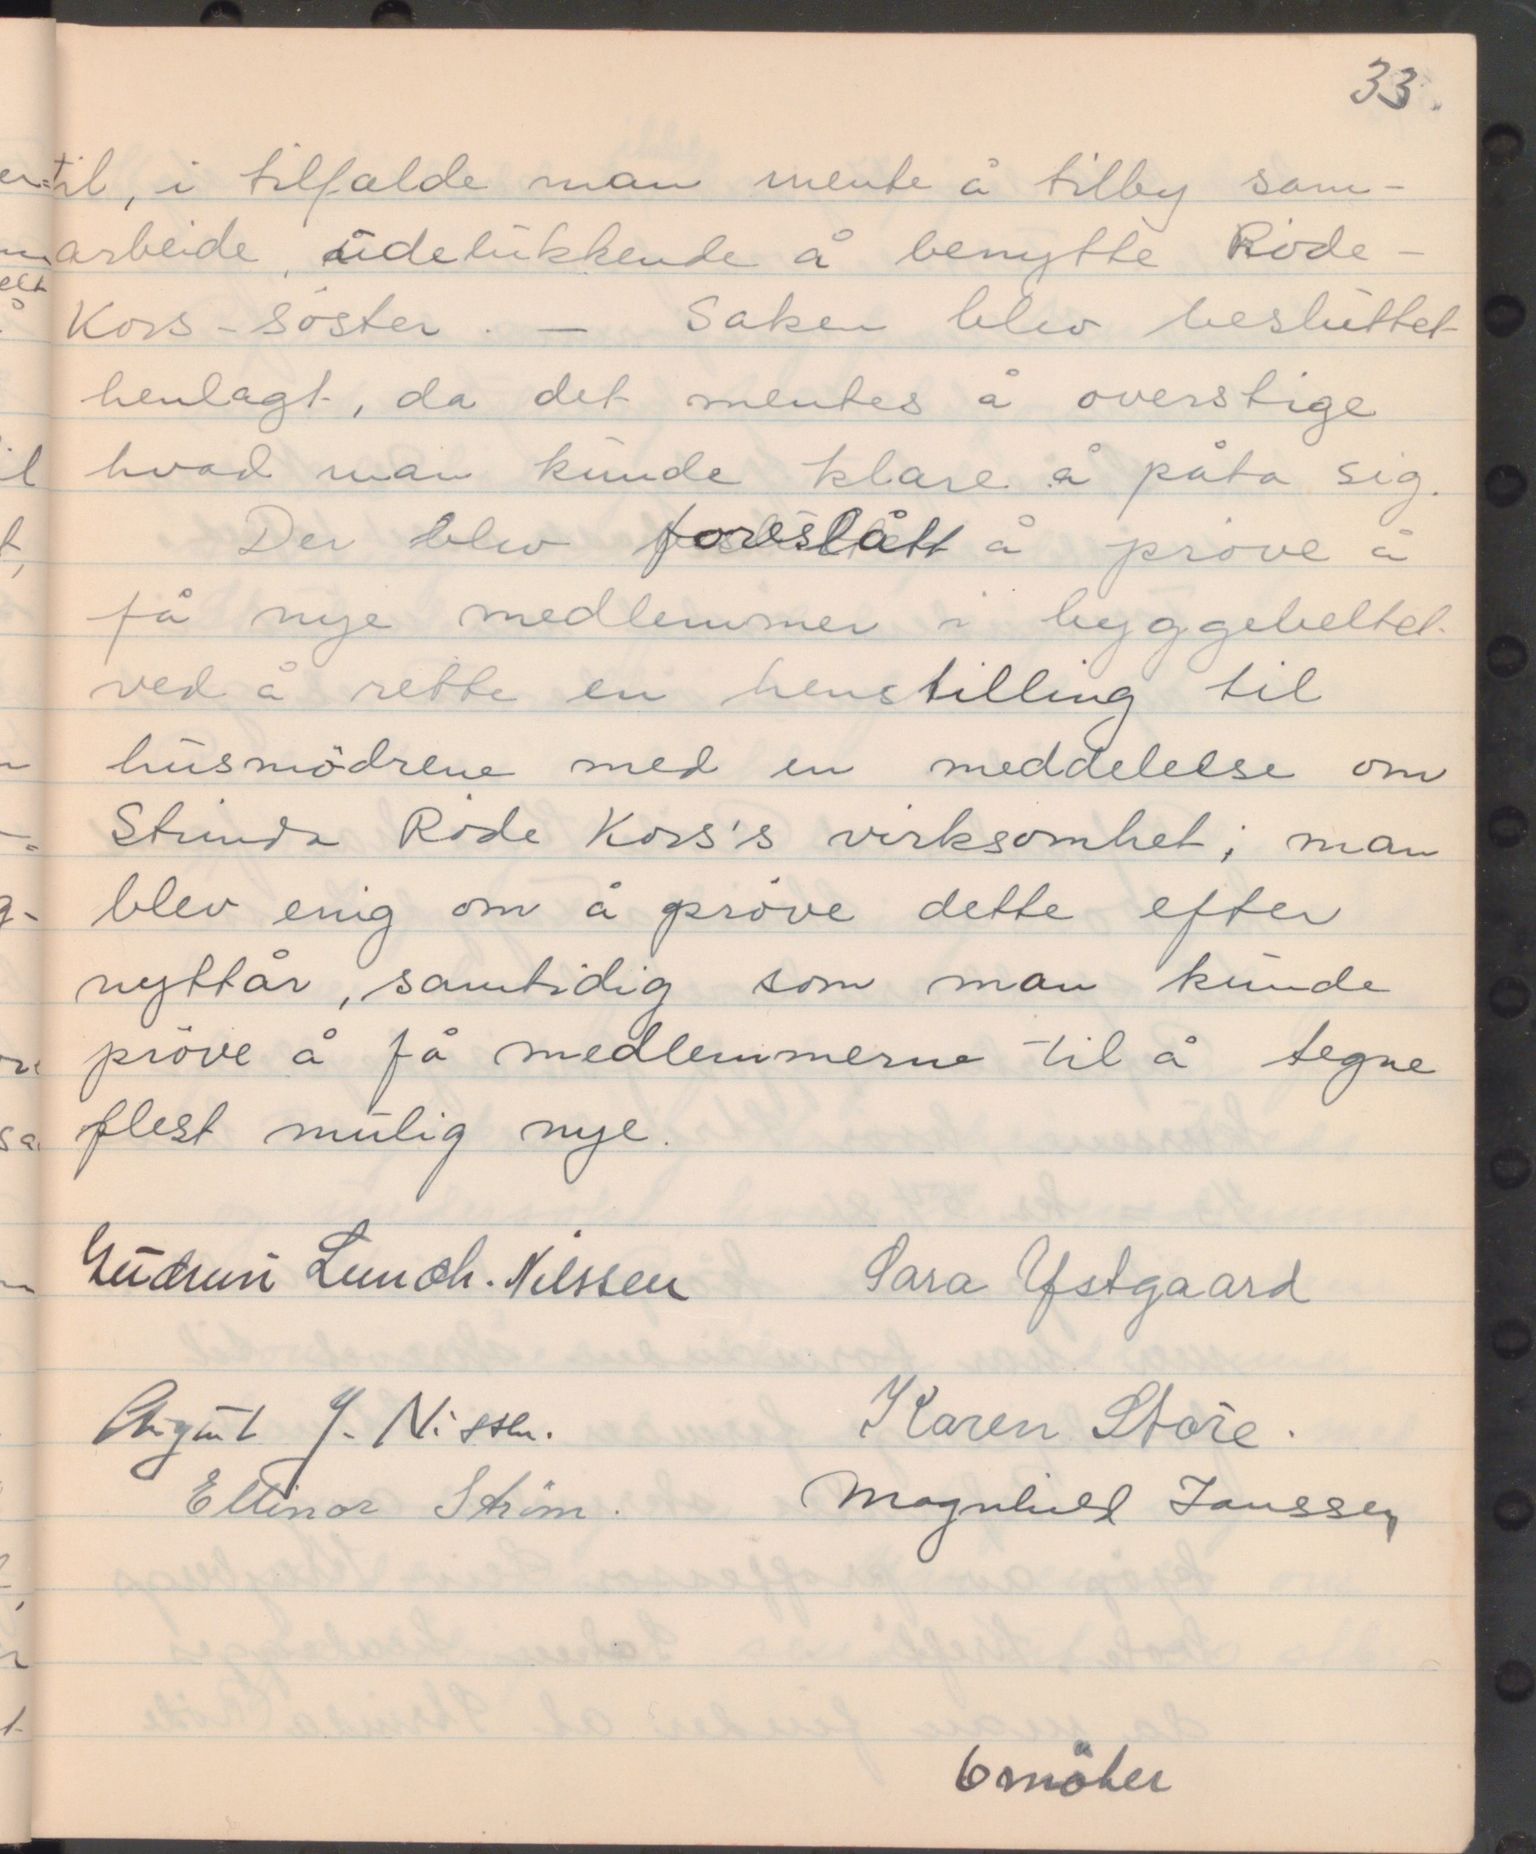 33.
til, i tilfælde man mente å tilby sam-
arbeide, udelukkende å benytte Röde-
Kors-söster. — Saken blev besluttet
henlagt, da det mentes å overstige
hvad man kunde klare å påta sig.
Der blev foreslått å pröve å
få nye medlemmer i byggebeltet
ved å rette en henstilling til
husmödrene med en meddelelse om
Strinda Röde Kors's virksomhet; man
blev enig om å pröve dette efter
nyttår, samtidig som man kunde
pröve å få medlemmerne til å tegne
flest mulig nye.
Gudrun Lunch-Nilssen Sara Ystgaard
August J. Nissen. Karen Støre.
Ellinor Ström. Magnhild Janssen
6 möter